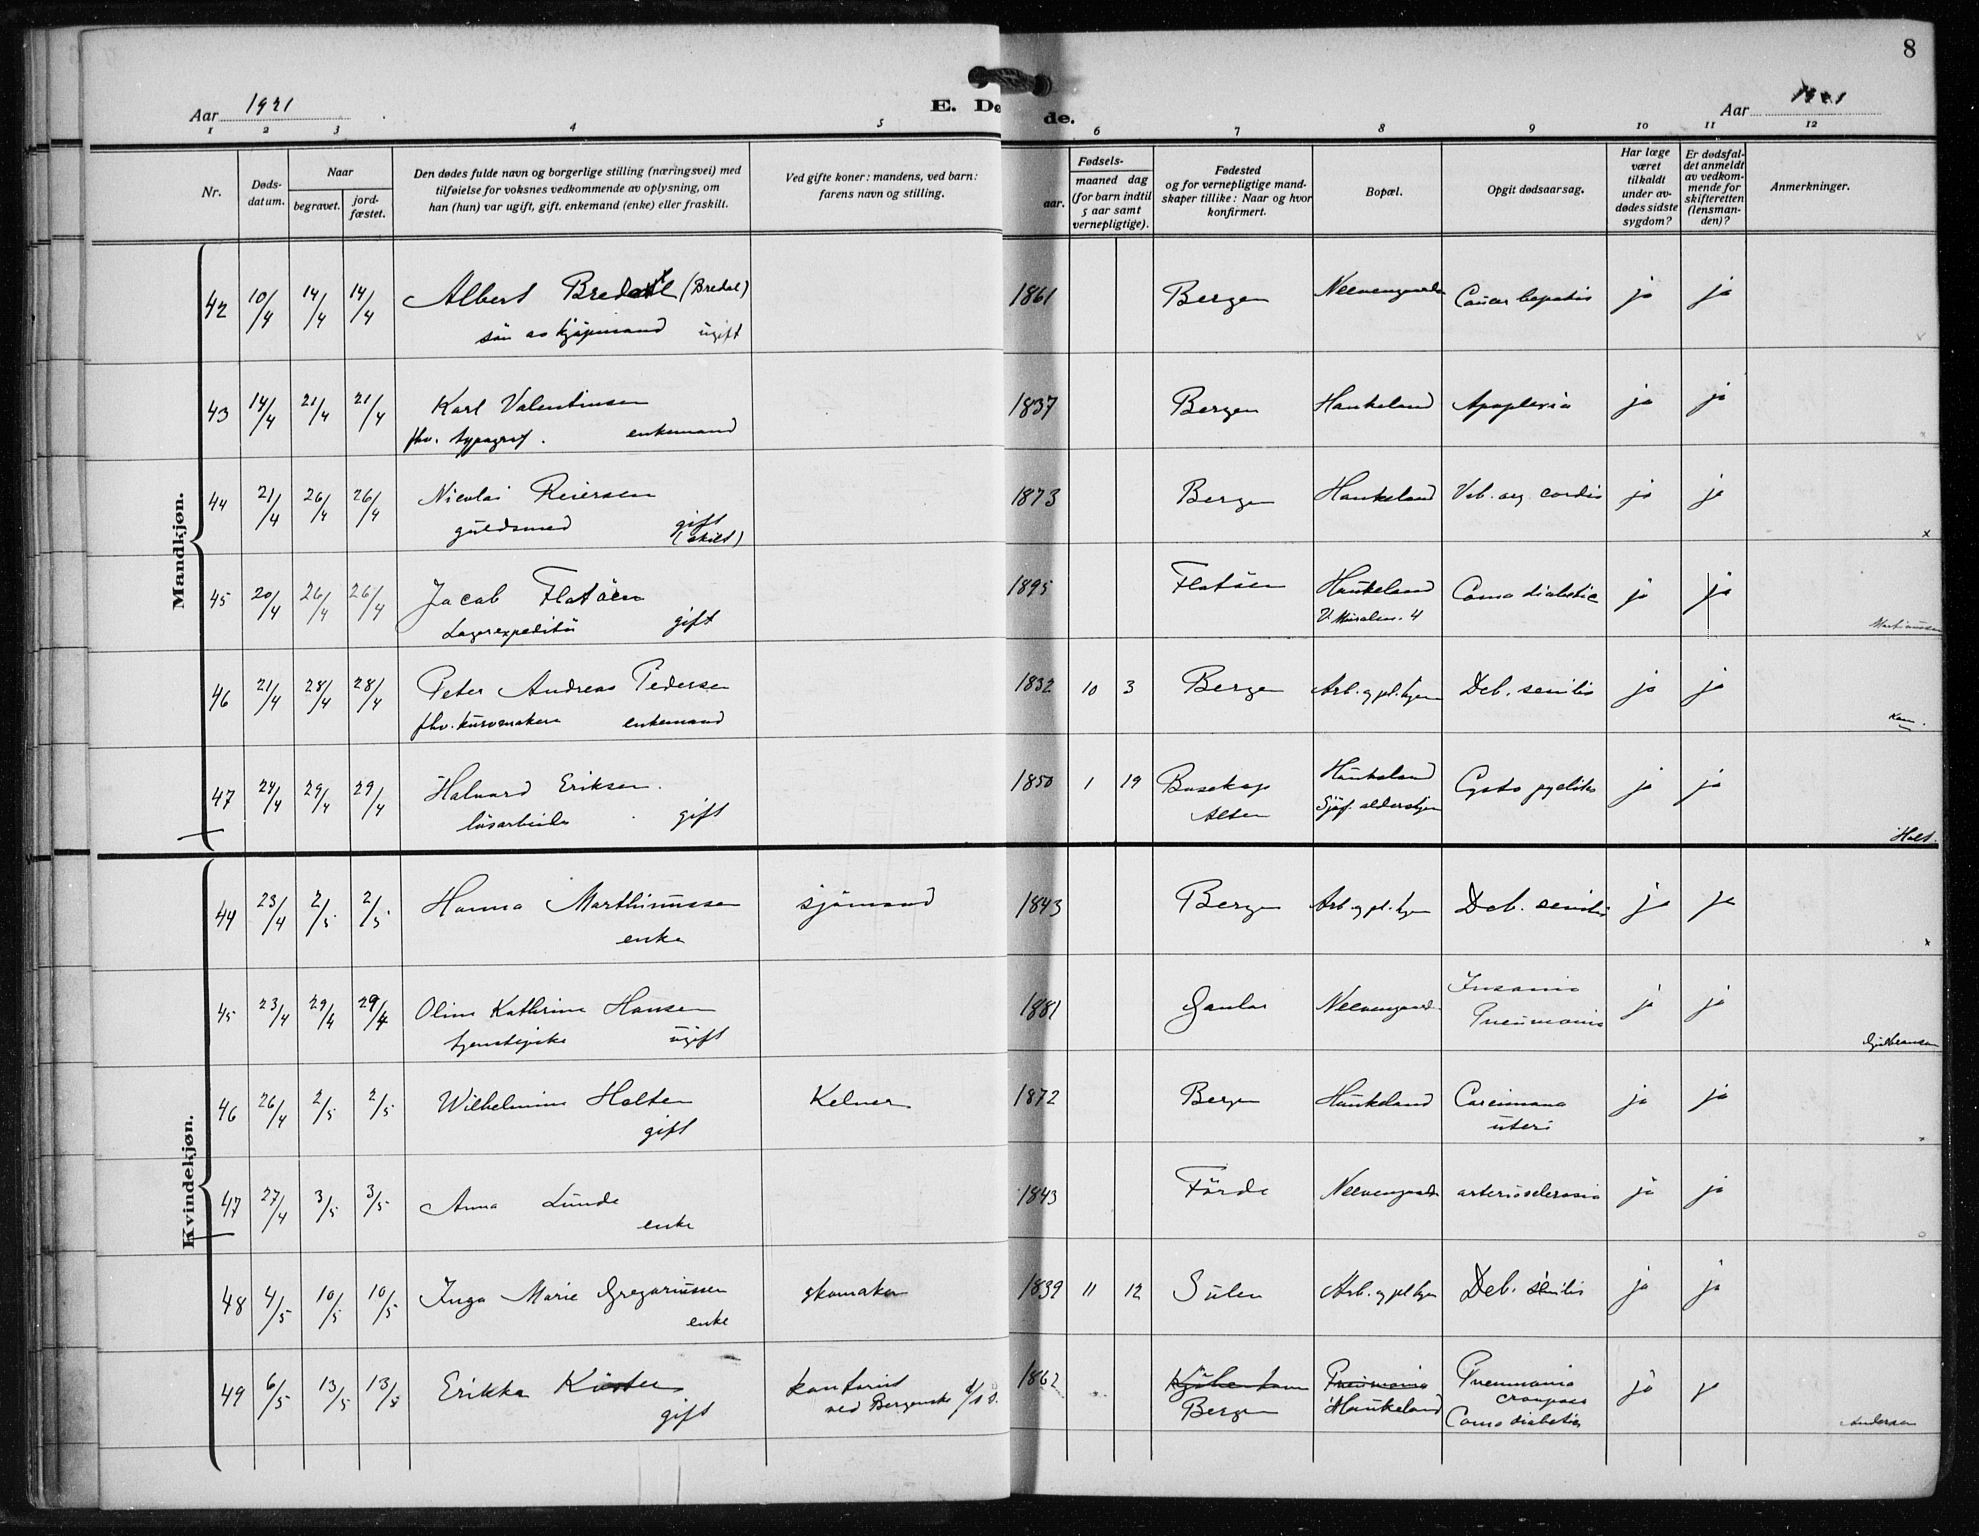 8
Aar 1921
E. Døde.
Aar 1921
1 2 3 4 5 6 7 8 9 10 11 12
Nr.
Døds-
datum.
Naar
begravet.
jord-
fæstet.
Den dødes fulde navn og borgerlige stilling (næringsvei) med
tilføielse for voksnes vedkommende av oplysning, om
han (hun) var ugift, gift, enkemand (enke) eller fraskilt.
Ved gifte koner: mandens, ved barn:
farens navn og stilling.
Fødsels-
aar.
maaned dag
(for barn indtil
5 aar samt
vernepligtige).
Fødested
og for vernepligtige mand-
skaper tillike: Naar og hvor
konfirmert.
Bopæl.
Opgit dødsaarsag.
Har læge
været
tilkaldt
under av-
dødes sidste
sygdom?
Er dødsfal-
det anmeldt
av vedkom-
mende for
skifteretten
(lensman-
den)?
Anmerkninger.
Mandkjøn.
42 10/4 14/4 14/4 Albert (Bredal) 1861 Bergen Neevengaarden Cancer hepatis ja ja
søn av kjøpmand ugift
43 14/4 21/4 21/4 Karl Valentinsen 1837 Bergen Haukeland Apoplexia ja ja
fhv. typograf. enkemand
44 21/4 26/4 26/4 Nicolai Reiersen 1873 Bergen Haukeland cordis ja ja
guldsmed gift
(skilt) x
45 20/4 26/4 26/4 Jacob Flatöen 1895 Flatöen Haukeland Coma diabetic ja ja
Lagerexpeditör gift V. Muralm. 4 Martinussen
46 21/4 28/4 28/4 Peter Andreas Pedersen 1832 10 3 Bergen Arb. og pl. hjem Deb. senilis ja ja
fhv. kurvmaker enkemand
47 24/4 29/4 29/4 Halvard Eriksen 1850 1 19 Bosekop Haukeland Cysto pyelitis ja ja
løsarbeider gift Alten Sjøf. aldershjem
Holt.
Kvindekjøn.
44 23/4 2/5 2/5 Hanna Marthinussen sjømand 1843 Bergen Arb. og pl. hjem Deb. senilis ja ja
enke x
45 23/4 29/4 29/4 Olina Kathrine Hansen 1881 Gaular Neevengaard Insania ja ja
tjenestepike ugift Pneumonia
Gulbransen
46 26/4 2/5 2/5 Wilhelmine Holten Kelner 1872 Bergen Haukeland Carcinoma ja ja
gift uteri
47 27/4 3/5 3/5 Anna Lunde 1843 Förde Neevengaarden arteriosclerosis ja ja
enke
48 4/5 10/5 10/5 Inga Marie Gregoriussen skomaker 1839 11 12 Sulen Arb. og pl hjem Deb. senilis ja ja
enke
49 6/5 13/5 13/5 Erikka Köster kontorist 1862 Kjøbenhavn Pneumonia Pneumonia ja ja
gift ved Bergenske D/S S. Bergen Haukeland crouposa
Coma diabetic
Andersen